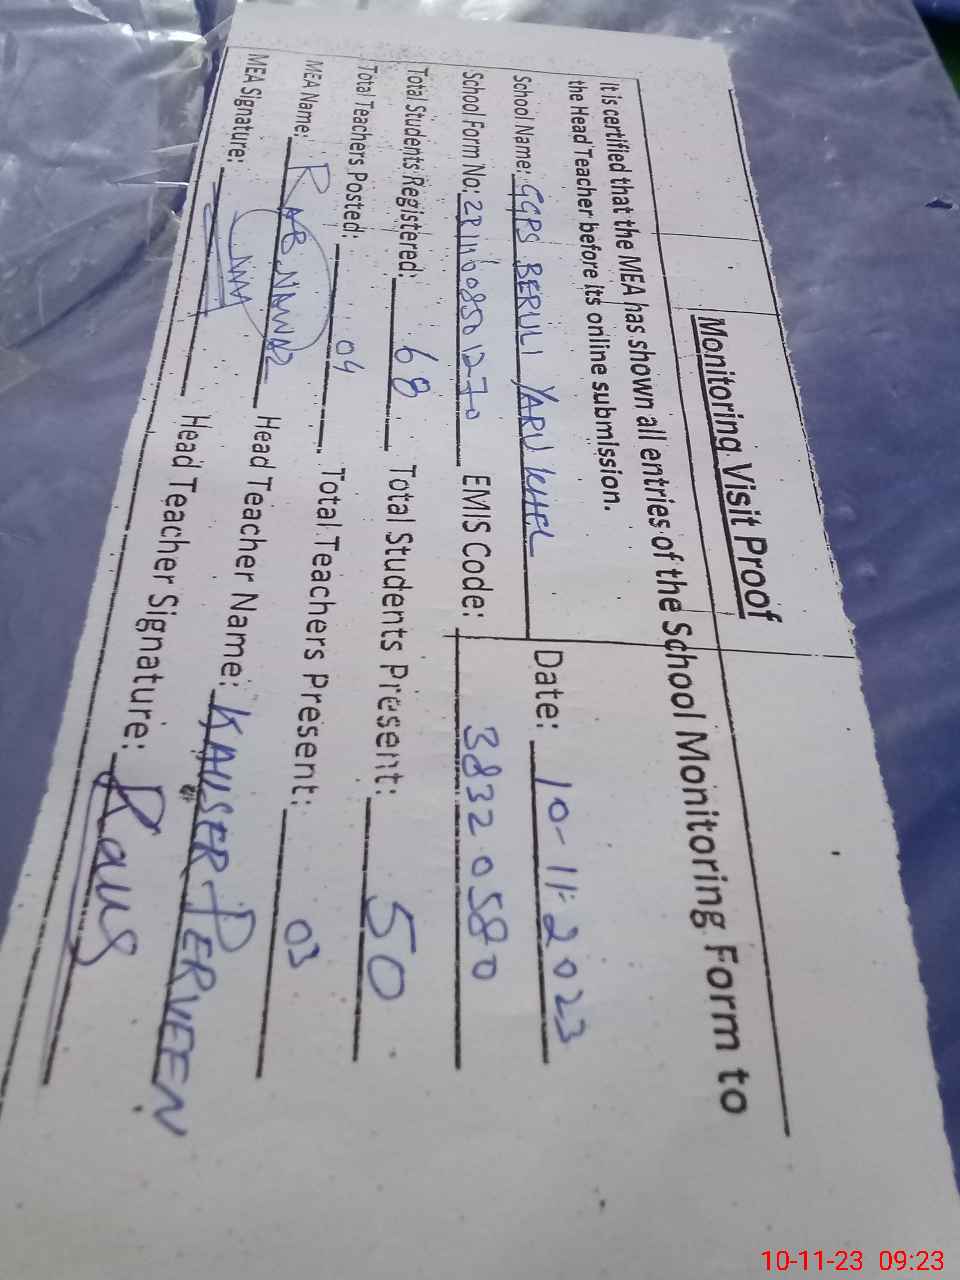 Monitoring Visit Proof
It is certified that the MEA has shown all entries of the School Monitoring Form to
the Head Teacher before its online submission.
School Name: GGPS BERULI YARU KHEL Date: 10-11-2023
School Form No: EMIS Code: 38320580
Total Students Registered: 68 Total Students Present: 50
Total Teachers Posted: 04 Total Teachers Present: 03
MEA Name: RAB NAWAZ Head Teacher Name: KAUSER PERVEEN
MEA Signature: Head Teacher Signature: Kaus
10-11-23 09:23